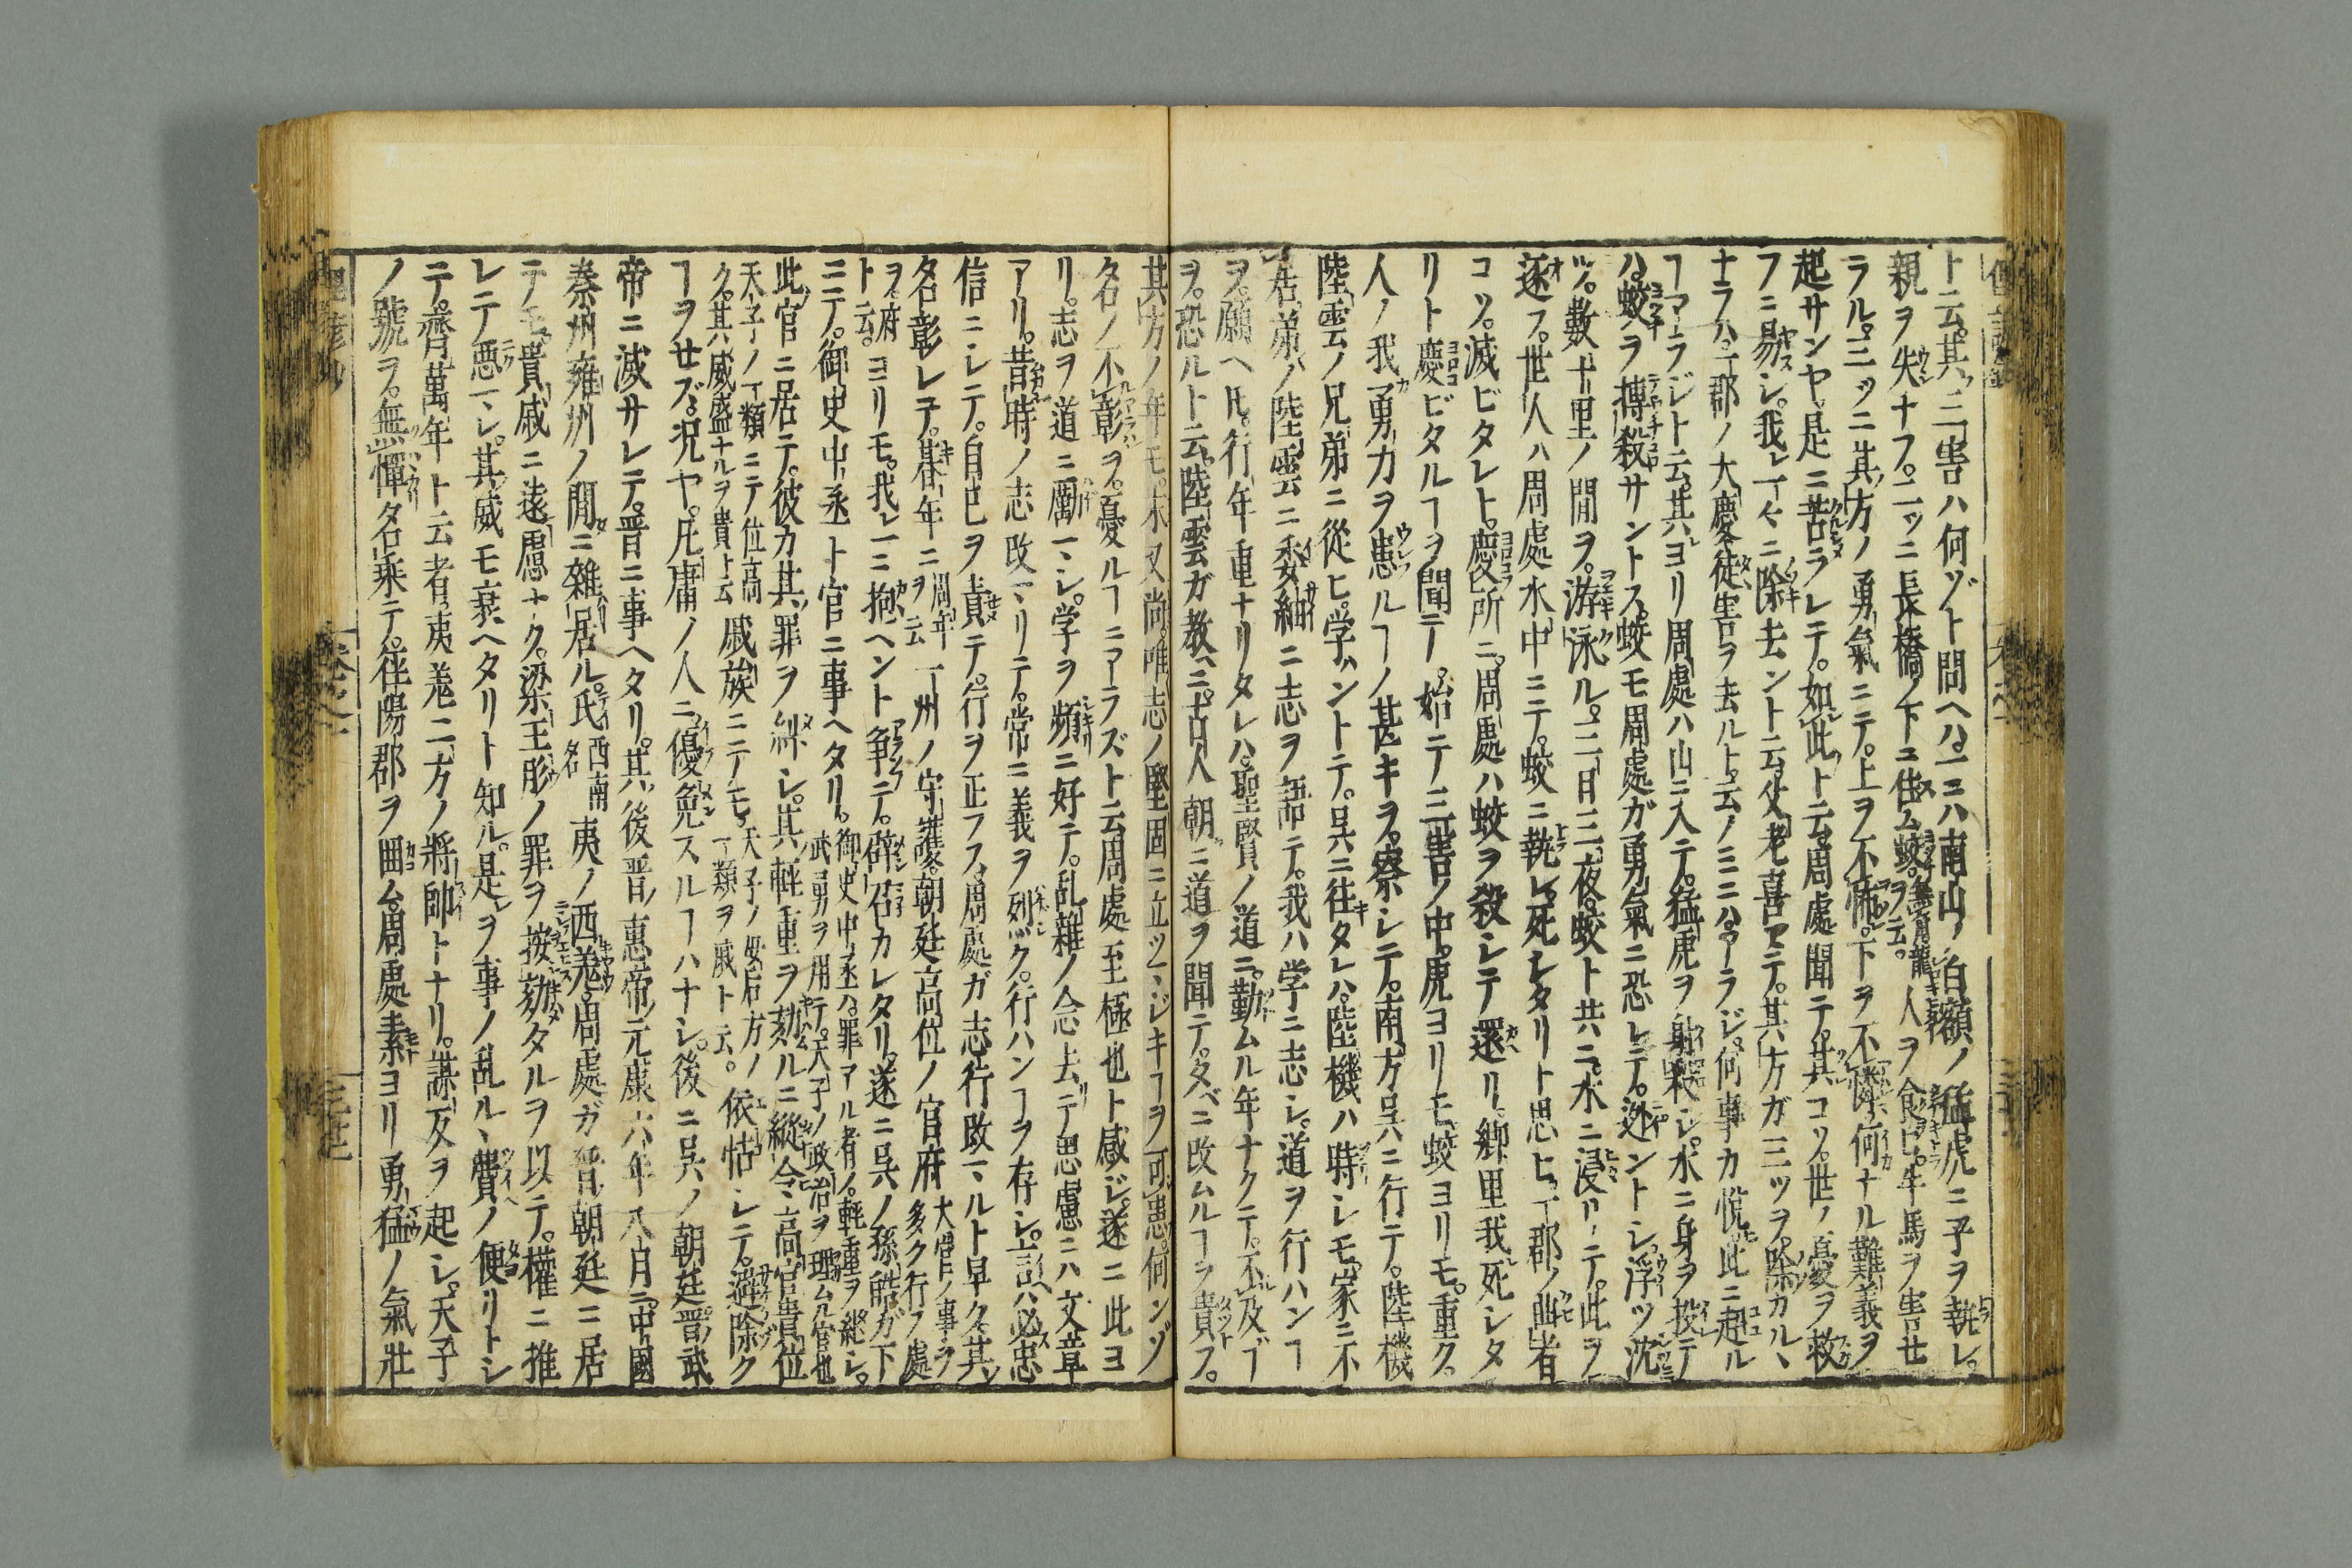 ト云。其ノ三害ハ何ゾト問ヘハ。一ニハ南山ノ白額ノ猛虎ニ子ヲ執レ。
親ヲ失ナフ。二ッニ長橋ノ下ニ住ム蛟。無角龍ヲ云。人ヲ食ヒ。牛馬ヲ害セ
ラル。三ッニ其方ノ勇氣ニテ。上ヲ不怖。下ヲ不憐。何ナル難義ヲ
起サンヤ。是ニ苦ラレテ。如此ト云。周處聞テ。其コソ。世ノ憂ヲ救
フニ易シ。我レ一々ニ除キ去ント云。父老喜アテ。其方ガ三ッヲ。除カル丶
ナラハ。一郡ノ大慶。徒害ヲ去ルト。云ノミニハアラジ。何事カ悦。此ニ超ル
ヿアラジト云。其レヨリ周處ハ山ニ入テ。猛虎ヲ射殺シ。水ニ身ヲ投テ
ハ。蛟ヲ搏殺サントス。蛟モ周處ガ勇氣ニ恐レテ。迯ントシ。浮ツ沈
ツ。數十里ノ間ヲ。游泳ル。三日三夜。蛟ト共ニ。水ニ浸リテ。此ヲ
逐フ。世人ハ周處水中ニテ。蛟ニ執レ。死シタリト思ヒ。一郡ノ幽者
コソ。滅ビタレト。慶所ニ。周處ハ蛟ヲ殺シテ還リ。郷里我死シタ
リト慶ビタルヿヲ聞テ。始テ三害ノ中。虎ヨリモ。蛟ヨリモ。重ク。
人ノ我勇力ヲ患ルヿノ甚キヲ。察シテ。南方呉ニ行テ。陸機
陸雲ノ兄弟ニ從ヒ。学ハントテ。呉ニ往タレハ。陸機ハ時シモ。家ニ不
居。弟ノ陸雲ニ委細ニ志ヲ語テ。我ハ学ニ志シ。道ヲ行ハンヿ
ヲ。願ヘ𪜈。行年重ナリタレハ。聖賢ノ道ニ。勤ムル年ナクテ。不及ヿ
ヲ。恐ルト云。陸雲ガ教ヘニ。古人朝ニ道ヲ聞テ。夕ベニ改ムルヿヲ貴フ。
其方ノ年モ。未又尚。唯志ノ堅固ニ立ツマジキヿヲ可患。何ンゾ
名ノ不彰ヲ。憂ルヿニアラズト云。周處至極也ト感ジ。遂ニ此ヨ
リ。志ヲ道ニ勵マシ。学ヲ頻ニ好テ。乱雜ノ念去テ思慮ニハ文章
アリ。昔時ノ志改マリテ。常ニ義ヲ烈ク。行ハンヿヲ存シ。言ヘハ必忠
信ニシテ。自已ヲ責テ。行ヲ正フス。周處ガ志行改マルト早ク其
名彰レテ。朞年ニ周年ヲ云一州ノ守護。朝廷高位ノ官府大官ノ事ヲ多ク行フ處
ヲ。府ト云。ヨリモ。我レ一ニ抱ヘント爭テ。辟召カレタリ。遂ニ呉ノ孫皓ガ下
ニテ。御史中丞ト官ニ事ヘタリ。御史中丞ハ。罪アル者ノ。輕重ヲ継シ。武勇ヲ用テ。天子ノ政治ヲ理ム官也
此官ニ居テ。彼カ其ノ罪ヲ糾シ。其ノ輕重ヲ劾ルニ縱令高官貴位
天子ノ一類ニテ位高ク。其威盛ナルヲ貴ト云戚族ニテモ。天子ノ母后方ノ一類ヲ戚ト云。依怙シテ。避除ク
ヿヲせズ。况ヤ。凡庸ノ人ニ優免スルヿハナシ。後ニ呉ノ朝廷。晋ノ武
帝ニ滅サレテ。晋ニ事ヘタリ。其後晋ノ惠帝ノ元康六年八月ニ。中國
秦州雍州ノ間ニ雜居ル。氐西南名夷ノ西羗。周處ガ晋ノ朝廷ニ居
テモ。貴戚ニ遠慮ナク。梁王肜ノ罪ヲ按劾タルヲ以テ。權ニ推
レテ悪マシ。其ノ威モ衰ヘタリト知ル。是レヲ事ノ乱ル丶費ノ便リトシ
テ。齊ノ萬年ト云者。夷羗二方ノ將帥トナリ。謀反ヲ起シ。天子
ノ號ヲ。無憚名乘テ。往陽郡ヲ囲ム。周處素ヨリ勇猛ノ氣壯